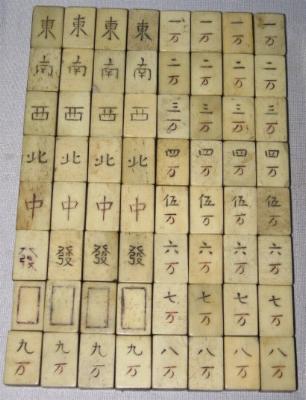 東 東 東 東 一万 一万 一万 一万
南 南 南 南 二万 二万 二万 二万
西 西 西 西 三万 三万 三万 三万
北 北 北 北 四万 四万 四万 四万
中 中 中 中 伍万 伍万 伍万 伍万
發 發 發 發 六万 六万 六万 六万
七万 七万 七万 七万
九万 九万 九万 九万 八万 八万 八万 八万